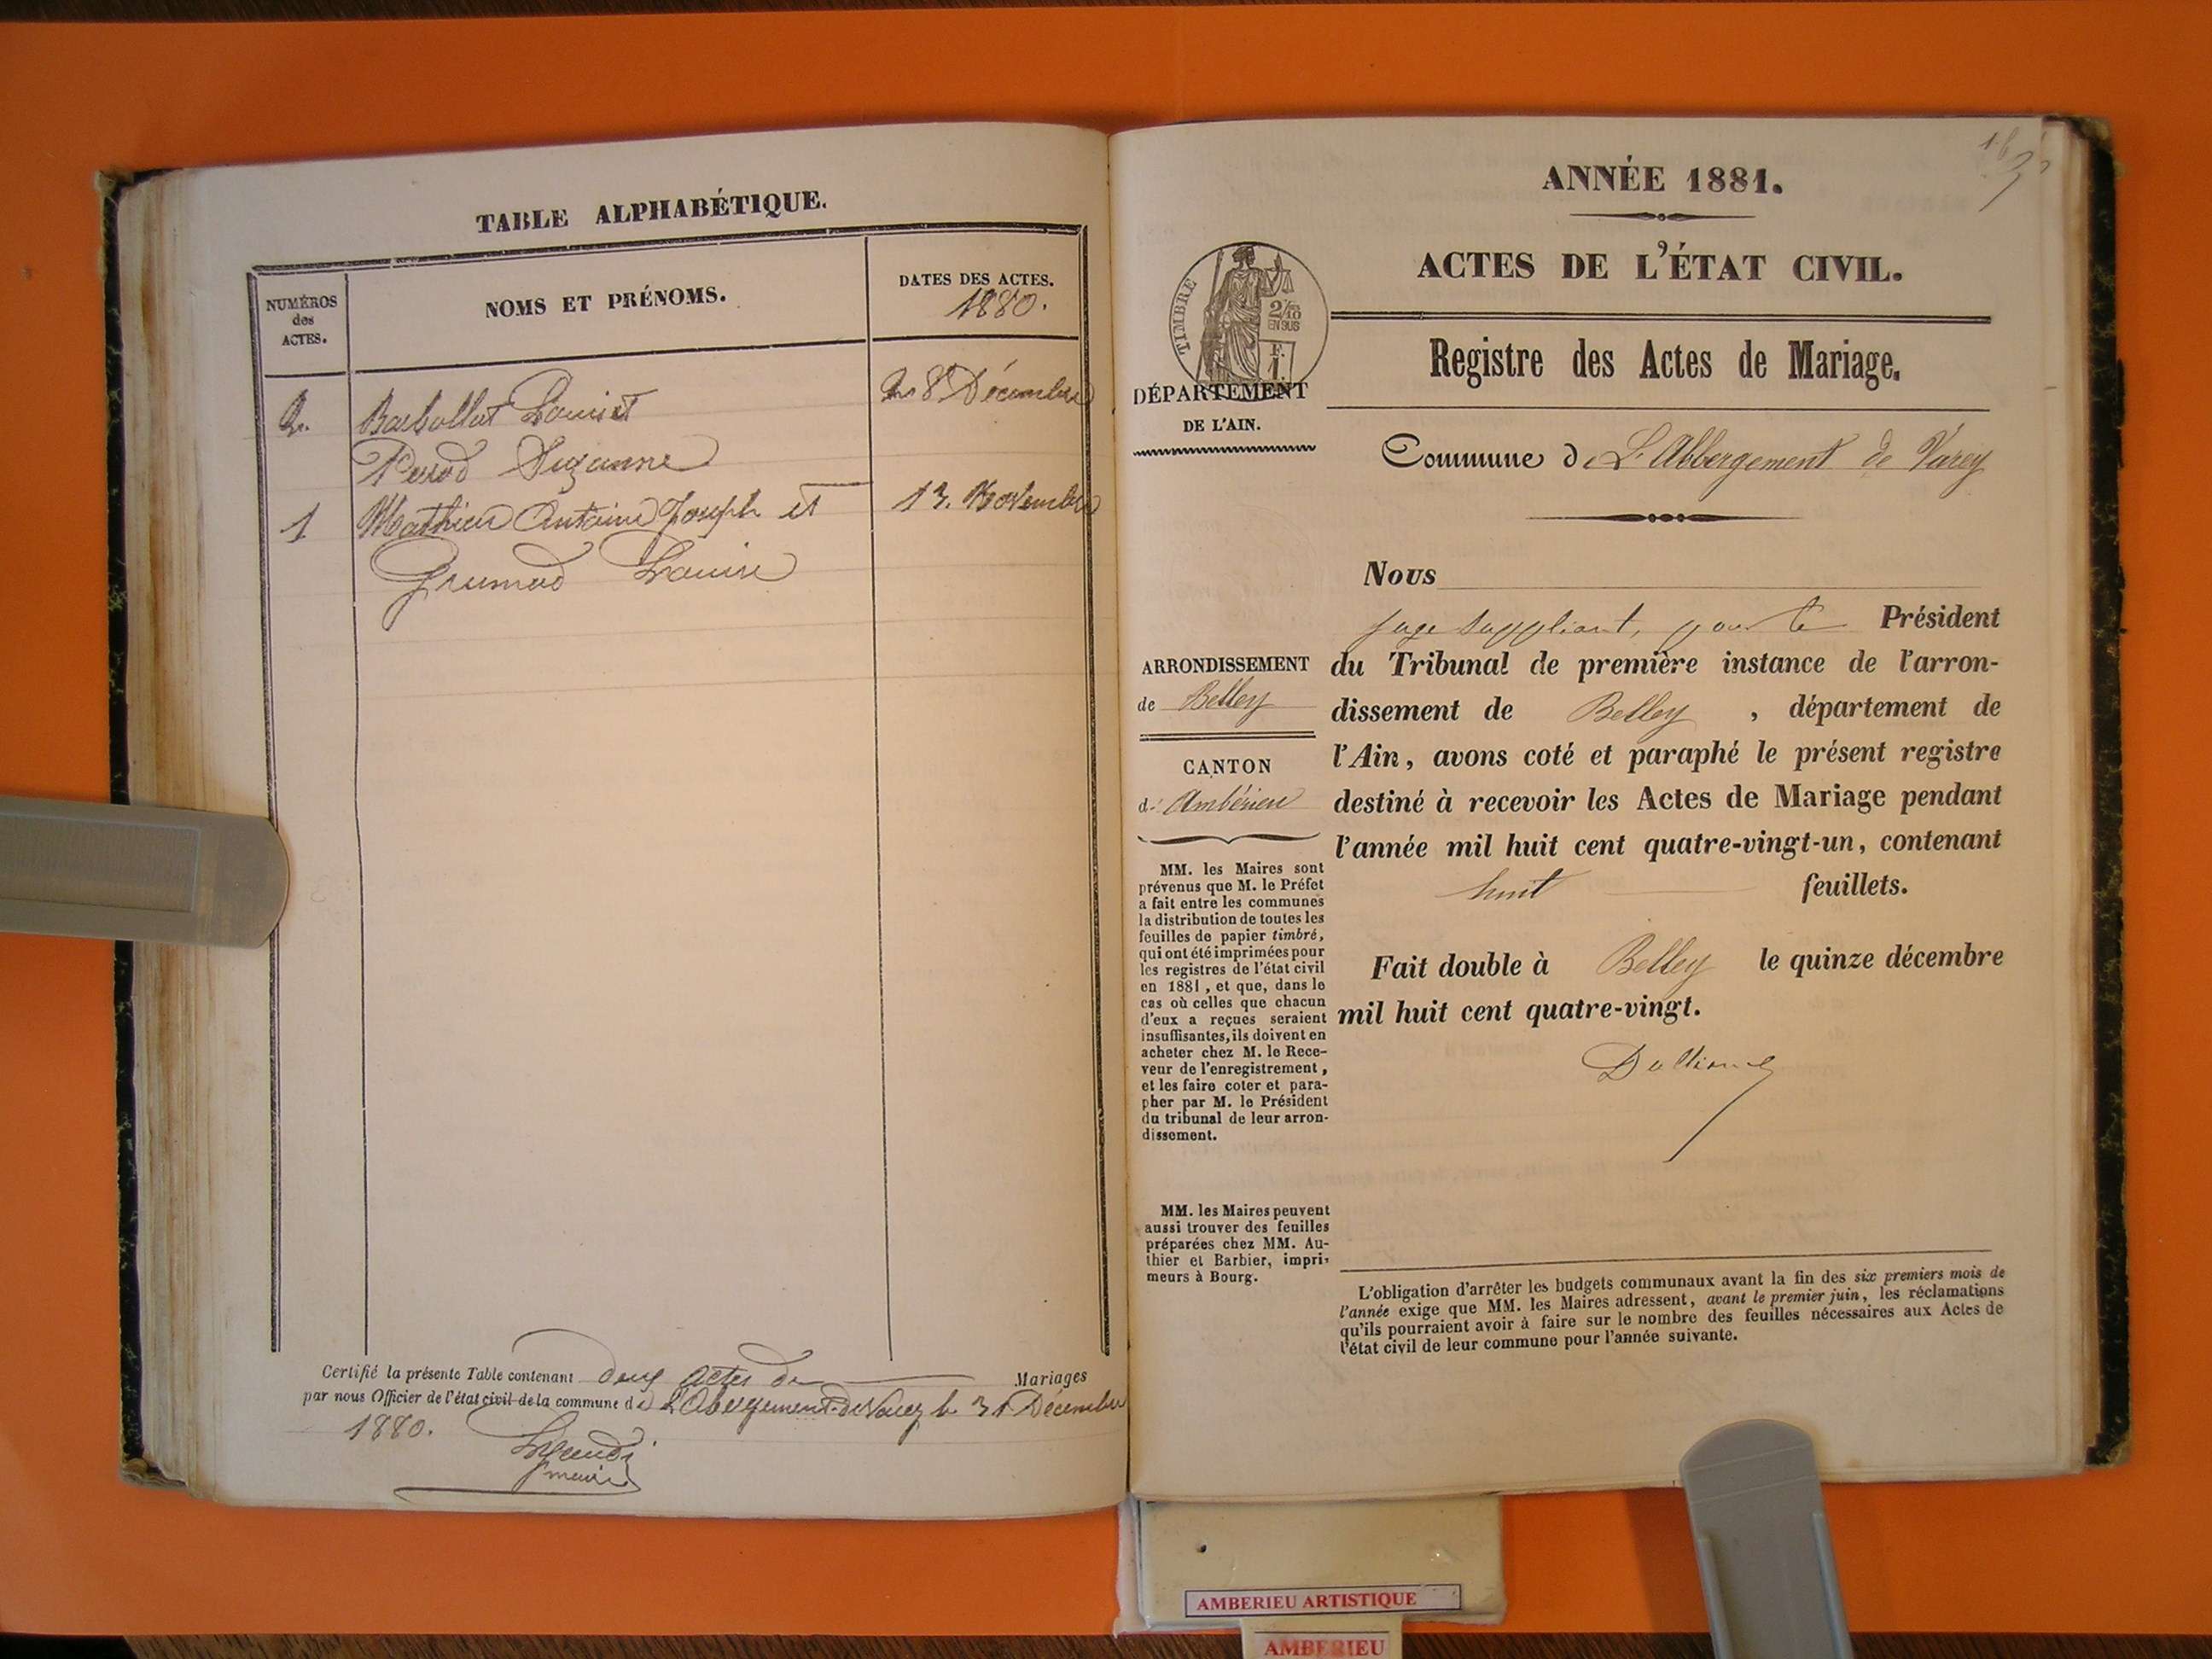 TABLE ALPHABÉTIQUE.
NUMÉROS
des
ACTES.
NOMS ET PRÉNOMS.
DATES DES ACTES.
1880.
2. Barbollat Louis et 28 Décembre
Perrod Suzanne
1 Mathieu Antoine Joseph et 13. Novembre
Louise
Certifié la présente Table contenant deux actes de Mariages
par nous Officier de l'état civil de la commune de L'Abergement-de-Varey le 31 Décembre
1880.
maire
ANNÉE 1881.
ACTES DE L'ÉTAT CIVIL.
TIMBRE
2/10
EN SUS
F.
1.
Registre des Actes de Mariage.
DÉPARTEMENT
DE L'AIN.
Commune de L'Abbergement de Varey
Nous
juge suppléant, pour le Président
ARRONDISSEMENT
de Belley
CANTON
d'Ambérieu
du Tribunal de première instance de l'arron-
dissement de Belley, département de
l'Ain, avons coté et paraphé le présent registre
destiné à recevoir les Actes de Mariage pendant
l'année mil huit cent quatre-vingt-un, contenant
huit feuillets.
Fait double à Belley le quinze décembre
mil huit cent quatre-vingt.
MM. les Maires sont
prévenus que M. le Préfet
a fait entre les communes
la distribution de toutes les
feuilles de papier timbré,
qui ont été imprimées pour
les registres de l'état civil
en 1881, et que, dans le
cas où celles que chacun
d'eux a reçues seraient
insuffisantes, ils doivent en
acheter chez M. le Rece-
veur de l'enregistrement,
et les faire coter et para-
pher par M. le Président
du tribunal de leur arron-
dissement.
MM. les Maires peuvent
aussi trouver des feuilles
préparées chez MM. Au-
thier et Barbier, impri-
meurs à Bourg.
L'obligation d'arrêter les budgets communaux avant la fin des six premiers mois de
l'année exige que MM. les Maires adressent, avant le premier juin, les réclamations
qu'ils pourraient avoir à faire sur le nombre des feuilles nécessaires aux Actes de
l'état civil de leur commune pour l'année suivante.
AMBERIEU ARTISTIQUE
AMBERIEU